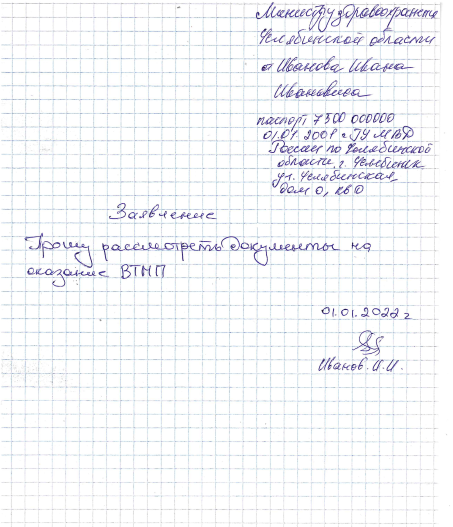 Министру здравоохранения
Челябинской области
от Иванова Ивана
Ивановича
паспорт 7500 000000
01.01.2001 г. ГУ МВД
России по Челябинской
области, г. Челябинск
ул. Челябинская,
дом 0, кв 0
Заявление
Прошу рассмотреть документы на
оказание ВТМП
01.01.2022 г
Иванов. И.И.